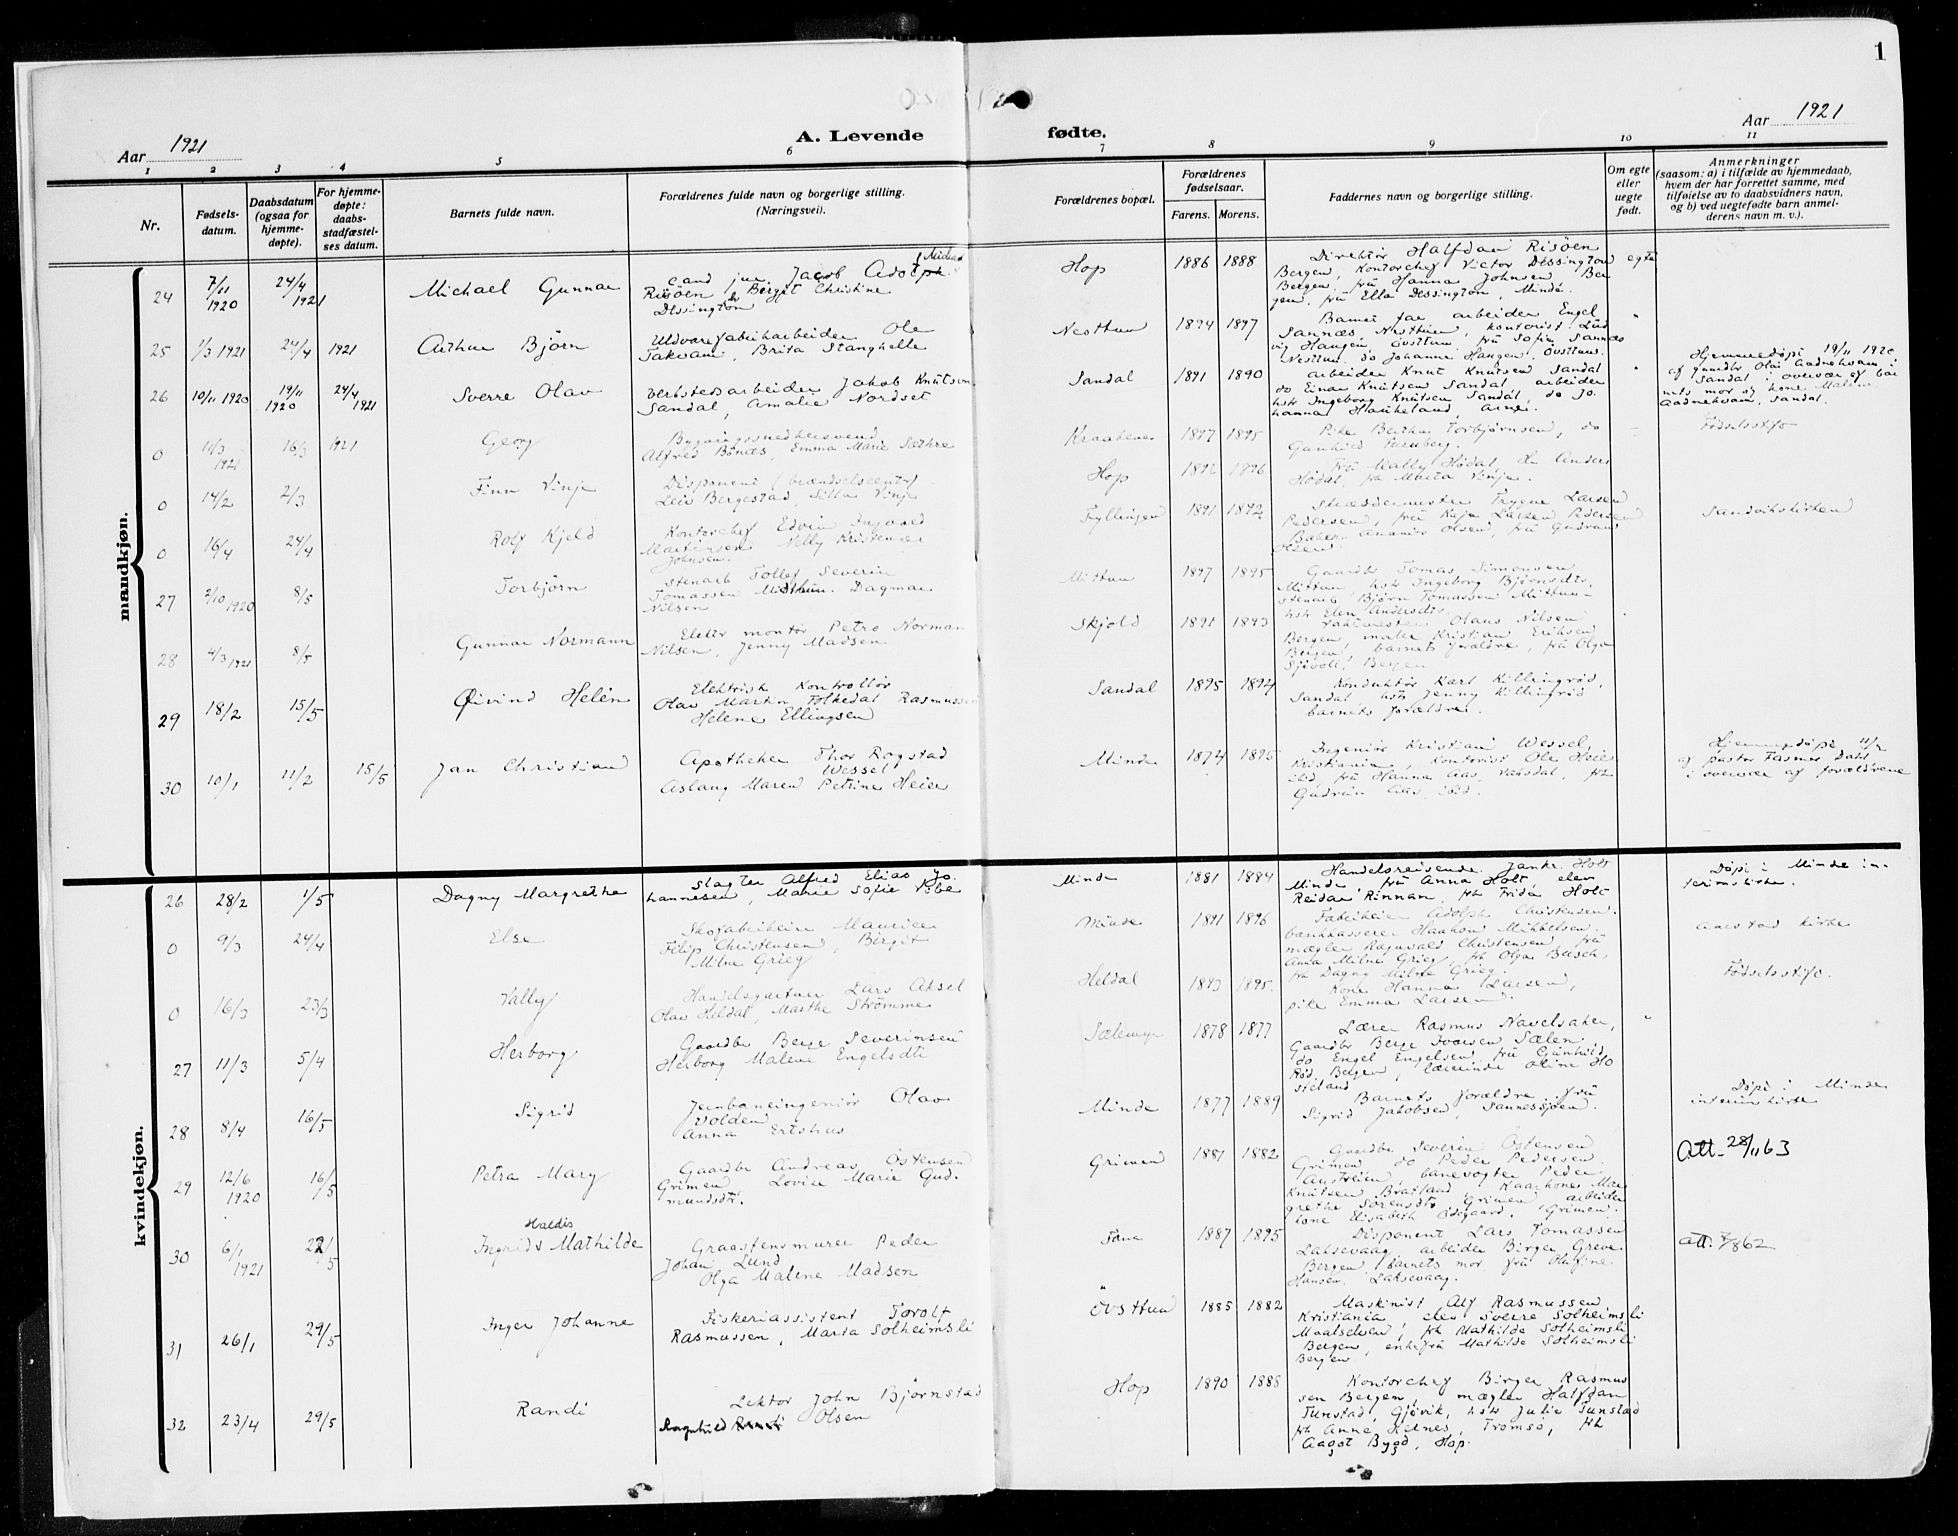 1
Aar 1921
A. Levende fødte.
Aar 1921
1 2 3 4 5 6 7 8 9 10 11
Nr.
Fødsels-
datum.
Daabsdatum
(ogsaa for
hjemme-
døpte).
For hjemme-
døpte:
daabs-
stadfæstel-
ses datum.
Barnets fulde navn.
Forældrenes fulde navn og borgerlige stilling.
(Næringsvei).
Forældrenes bopæl.
Forældrenes
fødselsaar.
Farens. Morens.
Faddernes navn og borgerlige stilling.
Om egte
eller
uegte
født.
Anmerkninger
(saasom: a) i tilfælde av hjemmedaab,
hvem der har forrettet samme, med
tilføielse av to daabsvidners navn,
og b) ved uegtefødte barn anmel-
derens navn m. v.).
mandkjøn.
24 7/11 1920 24/4 1921 Michael Gunnar
Cand jur Jacob Adolph Michael
Risöen, Birgit Christine
Dessington
Hop 1886 1888
Direktör Halfdan Risöen
Bergen, Kontorchef Victor Dessington
Bergen, frü Hanna Johnsen, Ber
gen, frü Ella Dessington, Minde.
egte
25 1/3 1921 24/4 1921 Arthur Björn
Uldvarefabrikarbeider Ole
Takvam, Brita Stanghelle
Nesttun 1894 1897
Barnets far arbeider Engel
Sannæs, Nesttun, kontorist Lud
vig Haugen Övsttun, frü Sofie Sannæs
Nesttun, do Johanne Haugen, Övsttun.
26 10/11 1920 19/11 1920 24/4 1921 Sverre Olav
Verkstedsarbeider Jakob Knutsen
Sandal, Amalie Nordset
Sandal 1891 1890
arbeider Knut Knutsen Sandal
do Einar Knütsen Sandal, arbeider
hstr Ingeborg Knütsen Sandal, do Jo
hanna Haukeland, Arne.
Hjemmedöpt 19/11 1920
af gaardbr Olai Aadnekvam i
Sandal i overvær af bar
nets mor og kone Malene
Aadnekvam, Sandal.
0 11/3 1921 16/3 1921 Georg
Bygningssnedkersvend
Alfred Bönæs, Emma Marie Sæthre
Kraakenes 1897 1895
Pike Bertha Torbjørnsen, do
Gunhild Fernberg.
Fødselsstift
0 14/2 2/3 Finn Vinje
Disponent (brændselscentr)
Leiv Bergestad, Silla Vinje
Hop 1892 1896
Frü Mally Hödal, hr Anders
Hödal, frk Marta Vinje.
0 16/4 24/4 Rolf Kjeld
Kontorchef Edvin Ingvald
Martinsen, Nelly Kristendr
Johnsen.
Fyllingen 1891 1892
Skræddermester Trygve Larsen
Pedersen, frü Kaja Larsen Pedersen
Baker Ananias Olsen, frü Gudrun
Olsen
Sandvikskirken
27 2/10 1920 8/5 Torbjörn
Stenarb Tollef Severin
Tomassen Midttun. Dagmar
Nilsen
Mittun 1897 1895
Gaardbr Tomas Simonsen
Mittun, hstr Ingeborg Björnsdtr.
stenarb Björn Tomassen Mittun
hstr Elen Andersdtr.
28 4/3 1921 8/5 Gunnar Normann
Elektr montör Petro Norman
Nilsen, Jenny Madsen
Skjold 1891 1893
Vaktmester Olaus Nilsen
Bergen, maler Kristian Eriksen
Bergen, barnets foraldre, frü Olga
Sjövoll, Bergen
29 18/2 15/5 Öivind Helén
Elektrisk Kontrollör
Olav Martin Folkedal Rasmussen
Helene Ellingsen
Sandal 1895 1894
Konduktör Karl Killingröd,
Sandal hstr Jenny Killingröd
barnets foraldre.
30 10/1 11/2 15/5 Jan Christian
Apotheker Thor Rogstad
Wessel
Aslaug Maren Petrine Heier
Minde 1874 1895
Ingeniör Kristian Wessel,
Kristiania, Kontorist Ole Heier
ibid, frü Hanna Aas, Vaksdal, frk
Gudrun Aas, ibid.
Hjemmedöpt 11/2
af pastor Fasmer Dahl
i overvær af forældrene
kvindekjøn.
26 28/2 1/5 Dagny Margrethe
Slagter Alfred Elias Jo.
hannesen, Marie Sofie Vibe
Minde 1881 1884
Handelsreisende Janke Holt
Minde, frü Anna Holt, elev
Reidar Rinnan, frk Frida Holt
Döpt i Minde in-
terimskirke.
0 9/3 24/4 Else
Skofabrikeier Maurice
Filip Christensen, Birgit
Milne Grieg
Minde 1891 1896
Fabrikeier Adolph Christensen.
bankkasserer Haakon Mikkelsen
mægler Ragnvald Christensen, frü
Anna Milne Grieg, frk Olga Beisch,
frk Dagny Milne Grieg.
Aarstad kirke
0 16/3 23/3 Vally
Handelsgartner Lars Aksel
Olav Heldal, Marthe Strömme
Heldal 1893 1895.
Kone Hanna Larsen,
pike Emma Larsen.
Fødselsstift.
27 11/3 5/4 Herborg
Gaardbr Berge Severinsen
Herborg Malene Engelsdtr
Sælemyr 1878 1877
Lærer Rasmus Navelsaker,
Gaardbr Berge Ivarsen Sælen,
do Engel Engelsen, frü Gunhild
Röd, Bergen, lærerinde Oline Ho
steland
28 8/4 16/5 Sigrid
Jernbaneingeniör Olav
Volden
Anna Ertshus
Minde 1877 1889
Barnets forældre, frü
Sigrid Jakobsen, Sannessjöen.
Döpt i Minde
interimskirke
29 12/6 1920 16/5 Petra Mary
Gaardbr Andreas Östensen
Grimen Lovise Marie Gud.
mundsdtr.
Grimen 1881 1882
Gaardbr Severin Östensen
Grimen, do Peder Pedersen
Austreim, banevogter Peder
Knütsen Bratland, Kaarhones Mar
grethe Sörensdtr Grimen, arbeider
kone Elisabeth Ödegaard, Grimen.
Att. 28/11 63
30 6/1 1921 22/5 Ingrids Haldis Mathilde
Graastensmurer Peder
Johan Lund
Olga Malene Madsen
Fane 1887 1895
Disponent Lars Tomassen
Laksevaag, arbeider Birger Greve
Bergen, barnets mor, frü Olufine
Hansen, Laksevaag.
Att. 7/8 62
31 26/1 29/5 Inger Johanne
Fiskeriassistent Torolf
Rasmussen, Marta Solheimsli
Övsttun 1885 1882
Maskinist Alf Rasmussen
Kristiania elev Sverre Solheimsli
Maalselven, frk Mathilde Solheimsli
Bergen, enkefrü Mathilde Solheimsli
Bergen
32 23/4 29/5 Randi
Lektor John Björnstad
Ragnhild Olsen
Hop 1890 1888
Kontorchef Birger Rasmus
sen Bergen, mægler Halfdan
Tunstad, Gjövik, hstr Julie Tunstad
frk Anne Helnes, Tromsö, frk
Aagot Bygd, Hop.